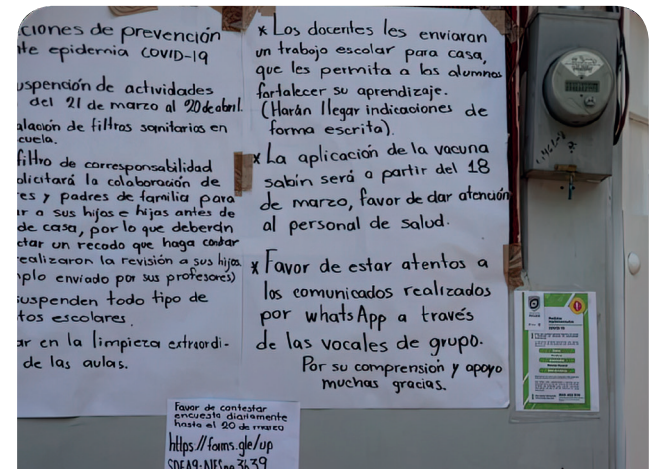 ciones de prevención
te epidemia COVID-19
uspención de actividades
del 21 de marzo al 20 de abril.
alación de filtros sanitarios en
cuela.
filtro de corresponsabilidad
olicitará la colaboración de
es y padres de familia para
ar a sus hijos e hijas antes de
de casa, por lo que deberán
ctar un recado que haga contar
realizaron la revisión a sus hijos
plo enviado por sus profesores)
suspenden todo tipo de
tos escolares.
ar en la limpieza extraordi-
de las aulas.
* Los docentes les enviaran
un trabajo escolar para casa,
que les permita a los alumnos
fortalecer su aprendizaje.
(Harán llegar indicaciones de
forma escrita).
* La aplicación de la vacuna
sabin será a partir del 18
de marzo, favor de dar atención
al personal de salud.
* Favor de estar atentos a
los comunicados realizados
por whatsApp a través
de las vocales de grupo.
Por su comprensión y apoyo
muchas gracias.
Favor de contestar
encuesta diariamente
hasta el 20 de marzo
https://forms.gle/up